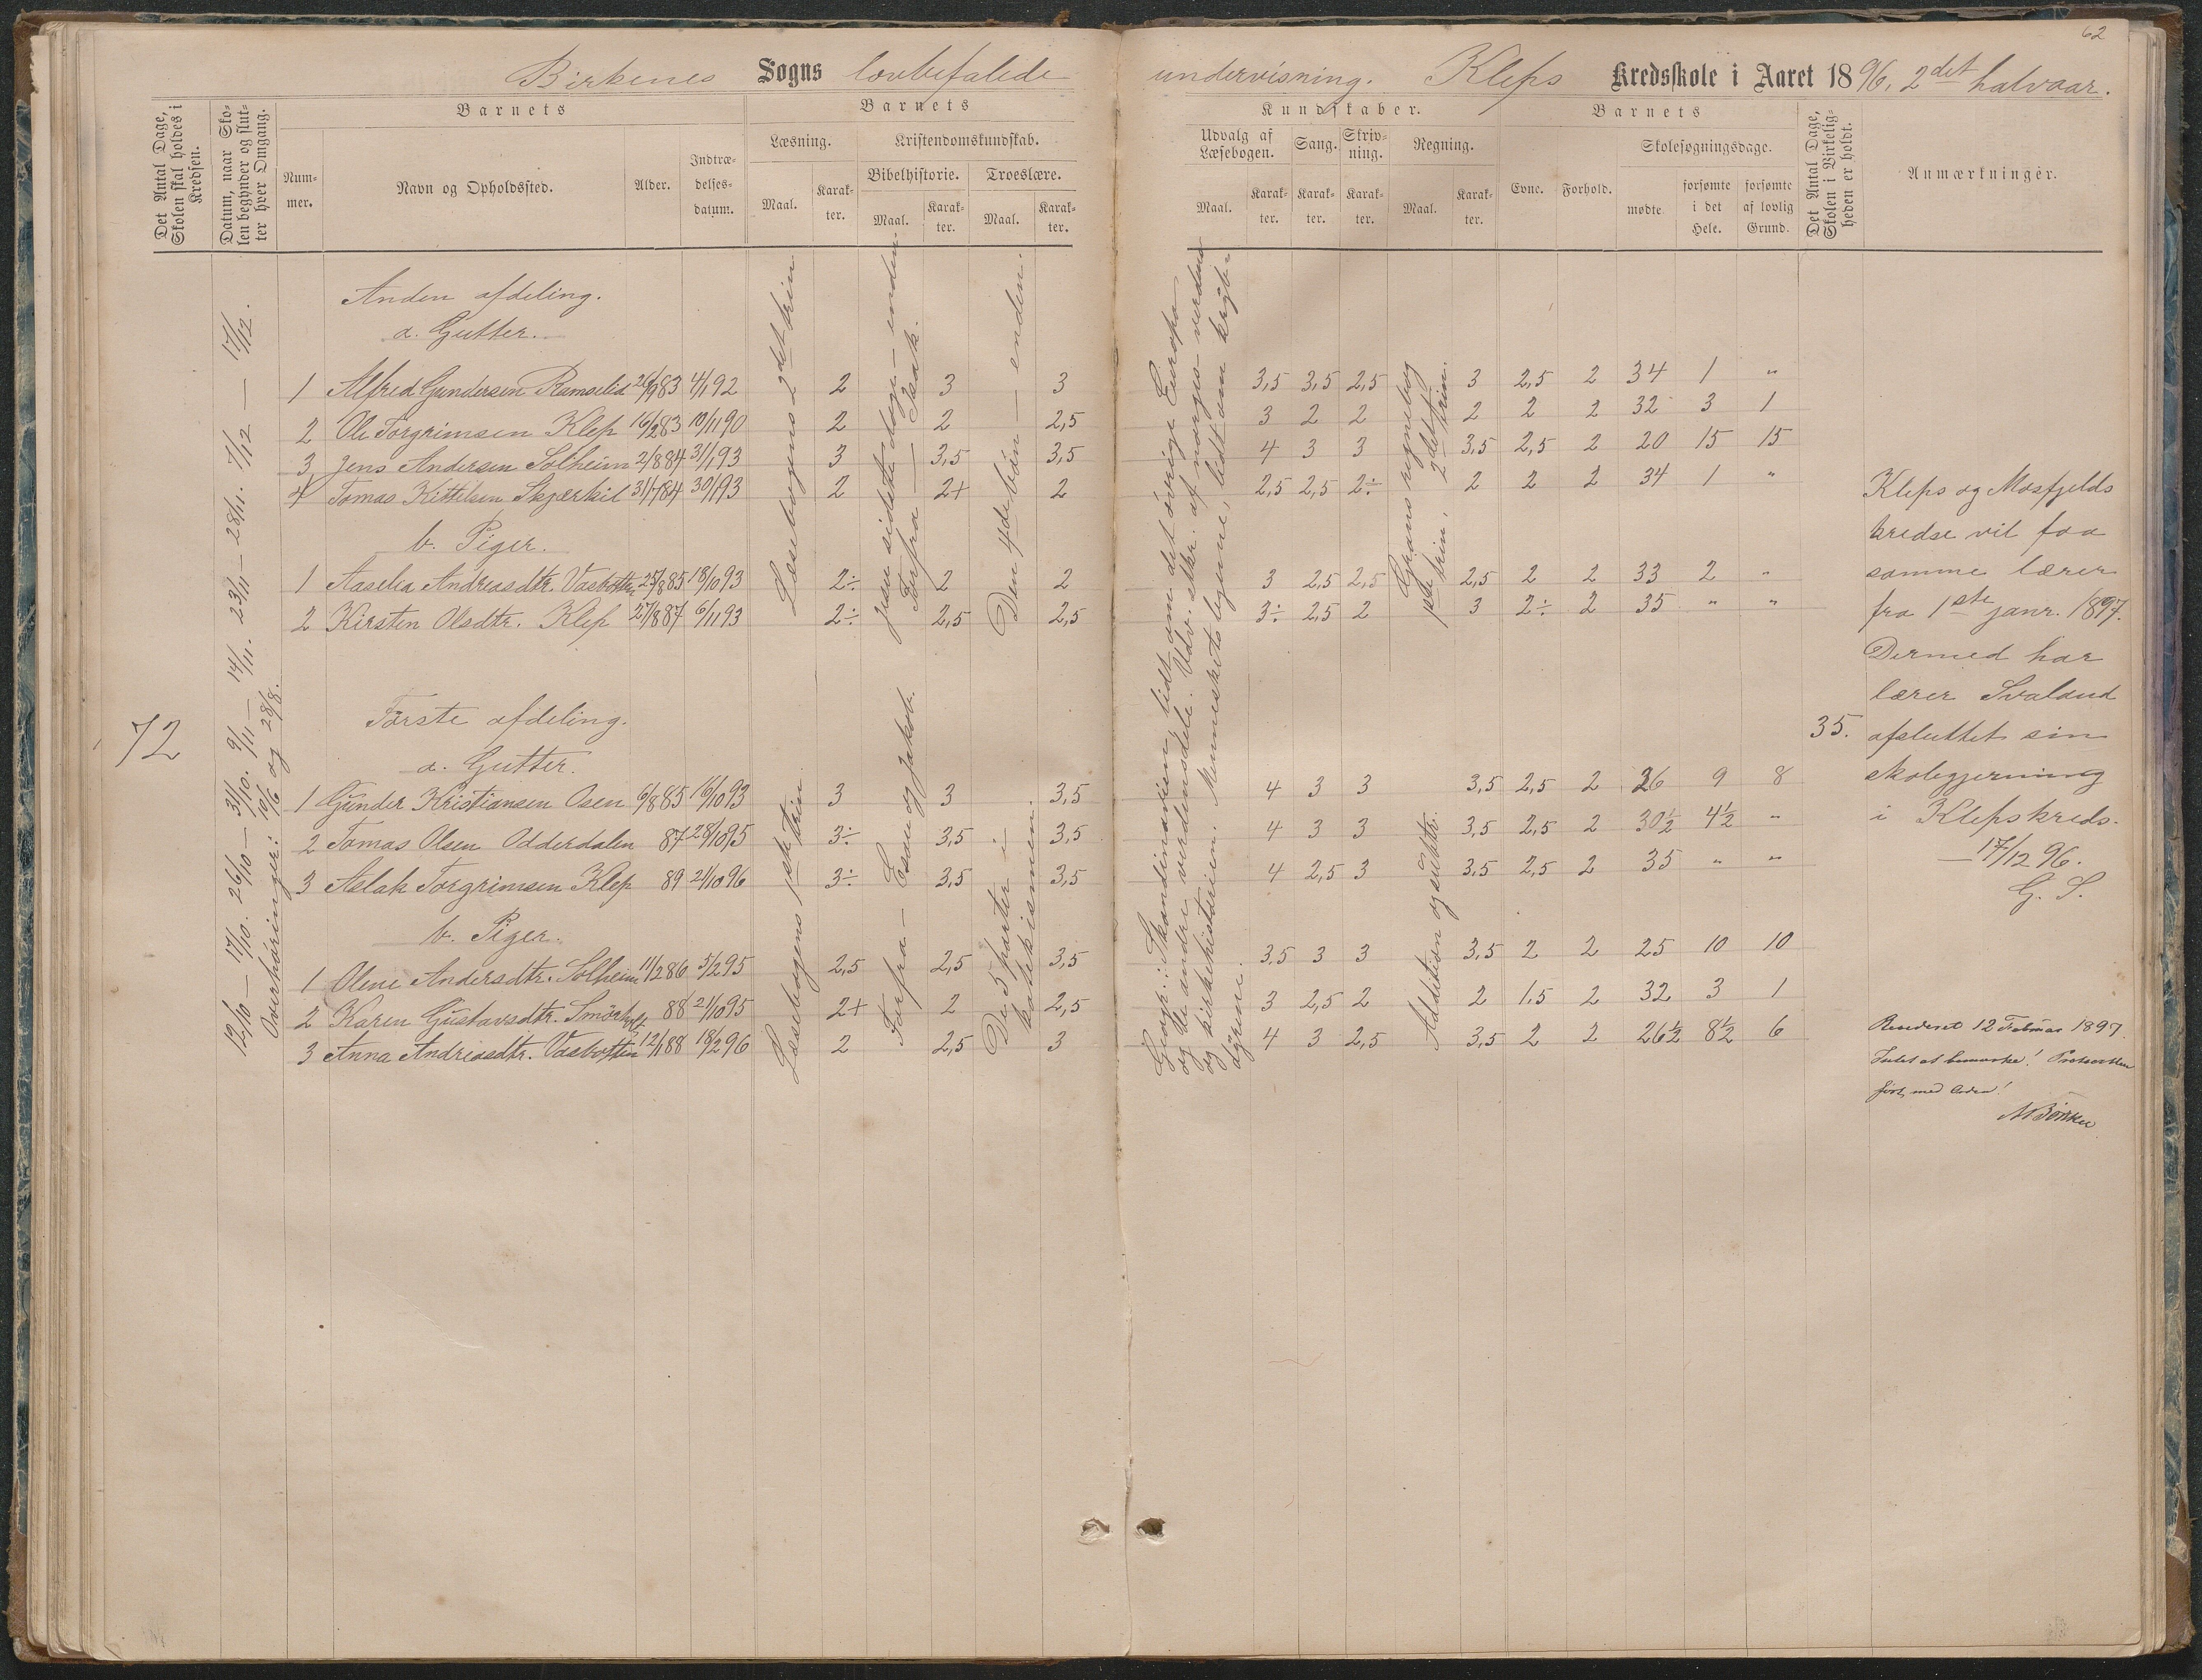 62
Birkenes Sogns lovbefalede undervisning. Kleps Kredsskole i Aaret 1896, 2det halvaar.
Det Antal Dage, Skolen skal holdes i Kredsen.
Datum, naar Skolen begynder og slutter hver Omgang.
Barnets
Nummer.
Navn og Opholdssted.
Alder.
Indtrædelsesdatum.
Barnets
Læsning.
Maal.
Karakter.
Kristendomskundskab.
Bibelhistorie.
Maal.
Karakter.
Troeslære.
Maal.
Karakter.
Kundskaber.
Udvalg af Læsebogen.
Maal.
Karakter.
Sang.
Karakter.
Skrivning.
Karakter.
Regning.
Maal.
Karakter.
Barnets
Evne.
Forhold.
Skolesøgningsdage.
mødte
forsømte i det Hele.
forsømte af lovlig Grund.
Det Antal Dage, Skolen i Virkeligheden er holdt.
Anmærkninger.
72
12/10 — 17/10. 26/10 — 31/10. 9/11 — 14/11. 23/11 — 28/11. 7/12 — 17/12.
Overhøringer: 10/6 og 28/8.
Anden afdeling.
a. Gutter.
1 Alfred Gundersen Ramselid 26/9 83 4/1 92 2 3 3 3,5 3,5 2,5 3 2,5 2 34 1 "
2 Ole Torgrimsen Klep 16/2 83 10/11 90 2 2 2,5 3 2 2 2 2 2 32 3 1
3 Jens Andersen Solheim 2/8 84 31/1 93 3 3,5 3,5 4 3 3 3,5 2,5 2 20 15 15
4 Tomas Kittelsen Skjærkil 31/7 84 30/1 93 2 2+ 2 2,5 2,5 2÷ 2 2 2 34 1 "
b. Piger.
1 Aaselia Andreasdtr. Vasbotten 25/8 85 18/10 93 2÷ 2 2 3 2,5 2,5 2,5 2 2 33 2 "
2 Kirsten Olsdtr. Klep 27/8 87 6/11 93 2÷ 2,5 2,5 3÷ 2,5 2 3 2÷ 2 35 " "
Læsebogens 2det trin
Jesu sidste dage — enden.
Forfra — Isak.
Den 4de bön — enden.
Første afdeling.
a. Gutter.
1 Gunder Kristiansen Osen 6/8 85 16/10 93 3 3 3,5 4 3 3 3,5 2,5 2 26 9 8
2 Tomas Olsen Odderdalen 87 28/10 95 3÷ 3,5 3,5 4 3 3 3,5 2,5 2 30½ 4½ "
3 Aslak Torgrimsen Klep 89 21/10 96 3÷ 3,5 3,5 4 2,5 3 3,5 2,5 2 35 " "
b. Piger.
1 Olene Andersdtr. Solheim 11/2 86 5/2 95 2,5 2,5 3,5 3,5 3 3 3,5 2 2 25 10 10
2 Karen Gustavsdtr. 88 21/10 95 2+ 2 2,5 3 2,5 2 2 1,5 2 32 3 1
3 Anna Andreasdtr. Vasbotten 12/1 88 18/2 96 2 2,5 3 4 3 2,5 3,5 2 2 26½ 8½ 6
Læsebogens 1ste trin
Forfra — Esau og Jakob.
De 5 parter i katekismen.
Geogr.: Skandinavien, lidt om det övrige Europa
og de andre verdensdele. Udv. stkr. af norges- verdens-
og kirkehistorien. Menneskets legeme, lidt om krybdyrene.
Grans regnebog
1ste trin, 2det trin.
Addition og subtr.
35.
Kleps og Mosfjelds
kredse vil faa
samme lærer
fra 1ste janr. 1897.
Dermed har
lærer Svaland
afsluttet sin
skolegjerning
i Klepskreds.
17/12 96.
G. S.
Revideret 12 Februar 1897
Intet at bemærke! Protocollen
ført med Orden!